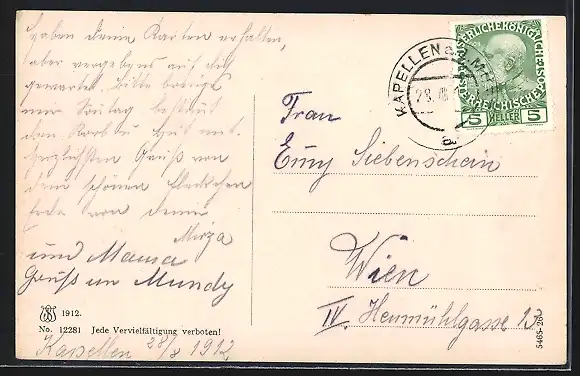 haben deine Karten erhalten,
aber vergebens auf dich
gewartet. bitte bringe
nur Sonntag bestimmt
den Korb u. Hut mit.
Herzlichsten Gruß von
dem schönen Fleckchen
Erde von deine
Mirza
und Mama
Gruss an Mundy
1912.
No. 12281 Jede Vervielfältigung verboten!
Kapellen 28/8 1912
KAPELLEN a. d. MÜRZ
KAISERLICHE KÖNIGLICHE ÖSTERREICHISCHE POST
5 HELLER 5
Frau
Emy Siebenschein
Wien
IV. Heumühlgasse 12
5465-26